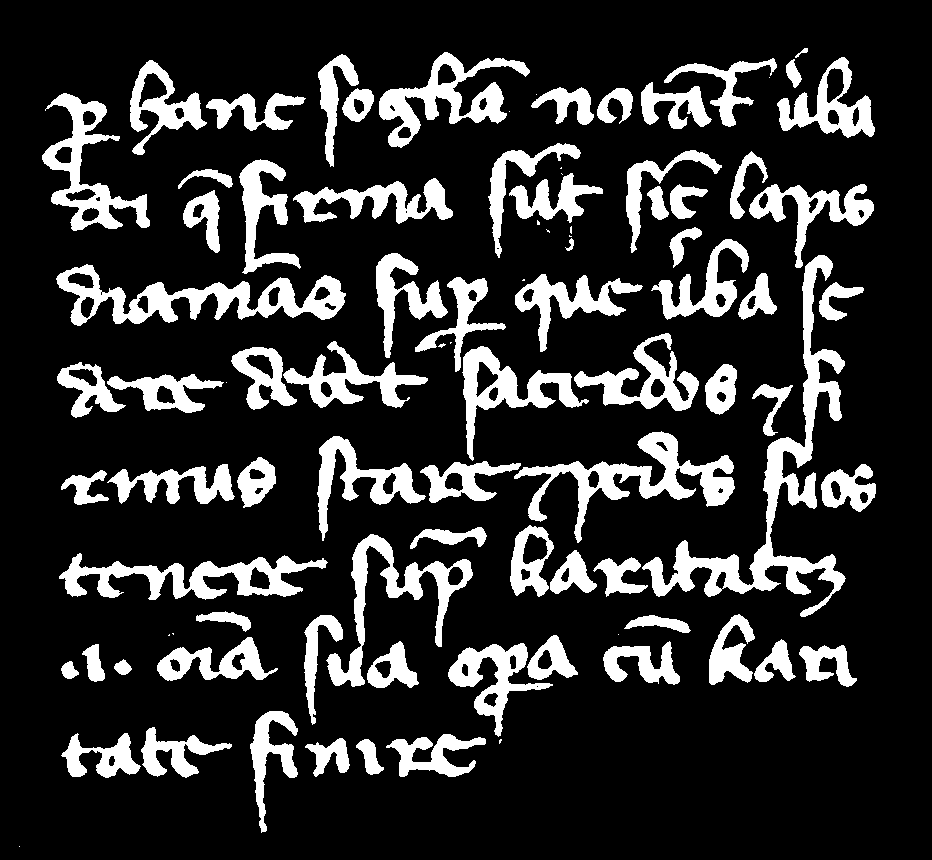 ꝑ hanc soghã notat᷑ u̾ba
dei q̃ firma su̅t sic̅ lapis
diamãs suꝑ que u̾ba se
dere debet sacerdos ⁊ fi
rmus stare ⁊ pedes suos
tenere sup̅ karitateꝫ
.i. oi̅a sua oꝑa cu̅ kari
tate finire